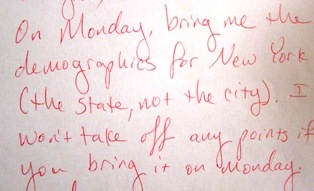 On Monday, bring me the
demographics for New York
(the state, not the city). I
won't take off any points if
you bring it on monday.